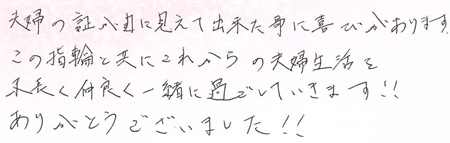 夫婦の証が目に見えて出来た事に喜びがあります
この指輪と共にこれからの夫婦生活を
末長く仲良く一緒に過ごしていきます!!
ありがとうございました!!